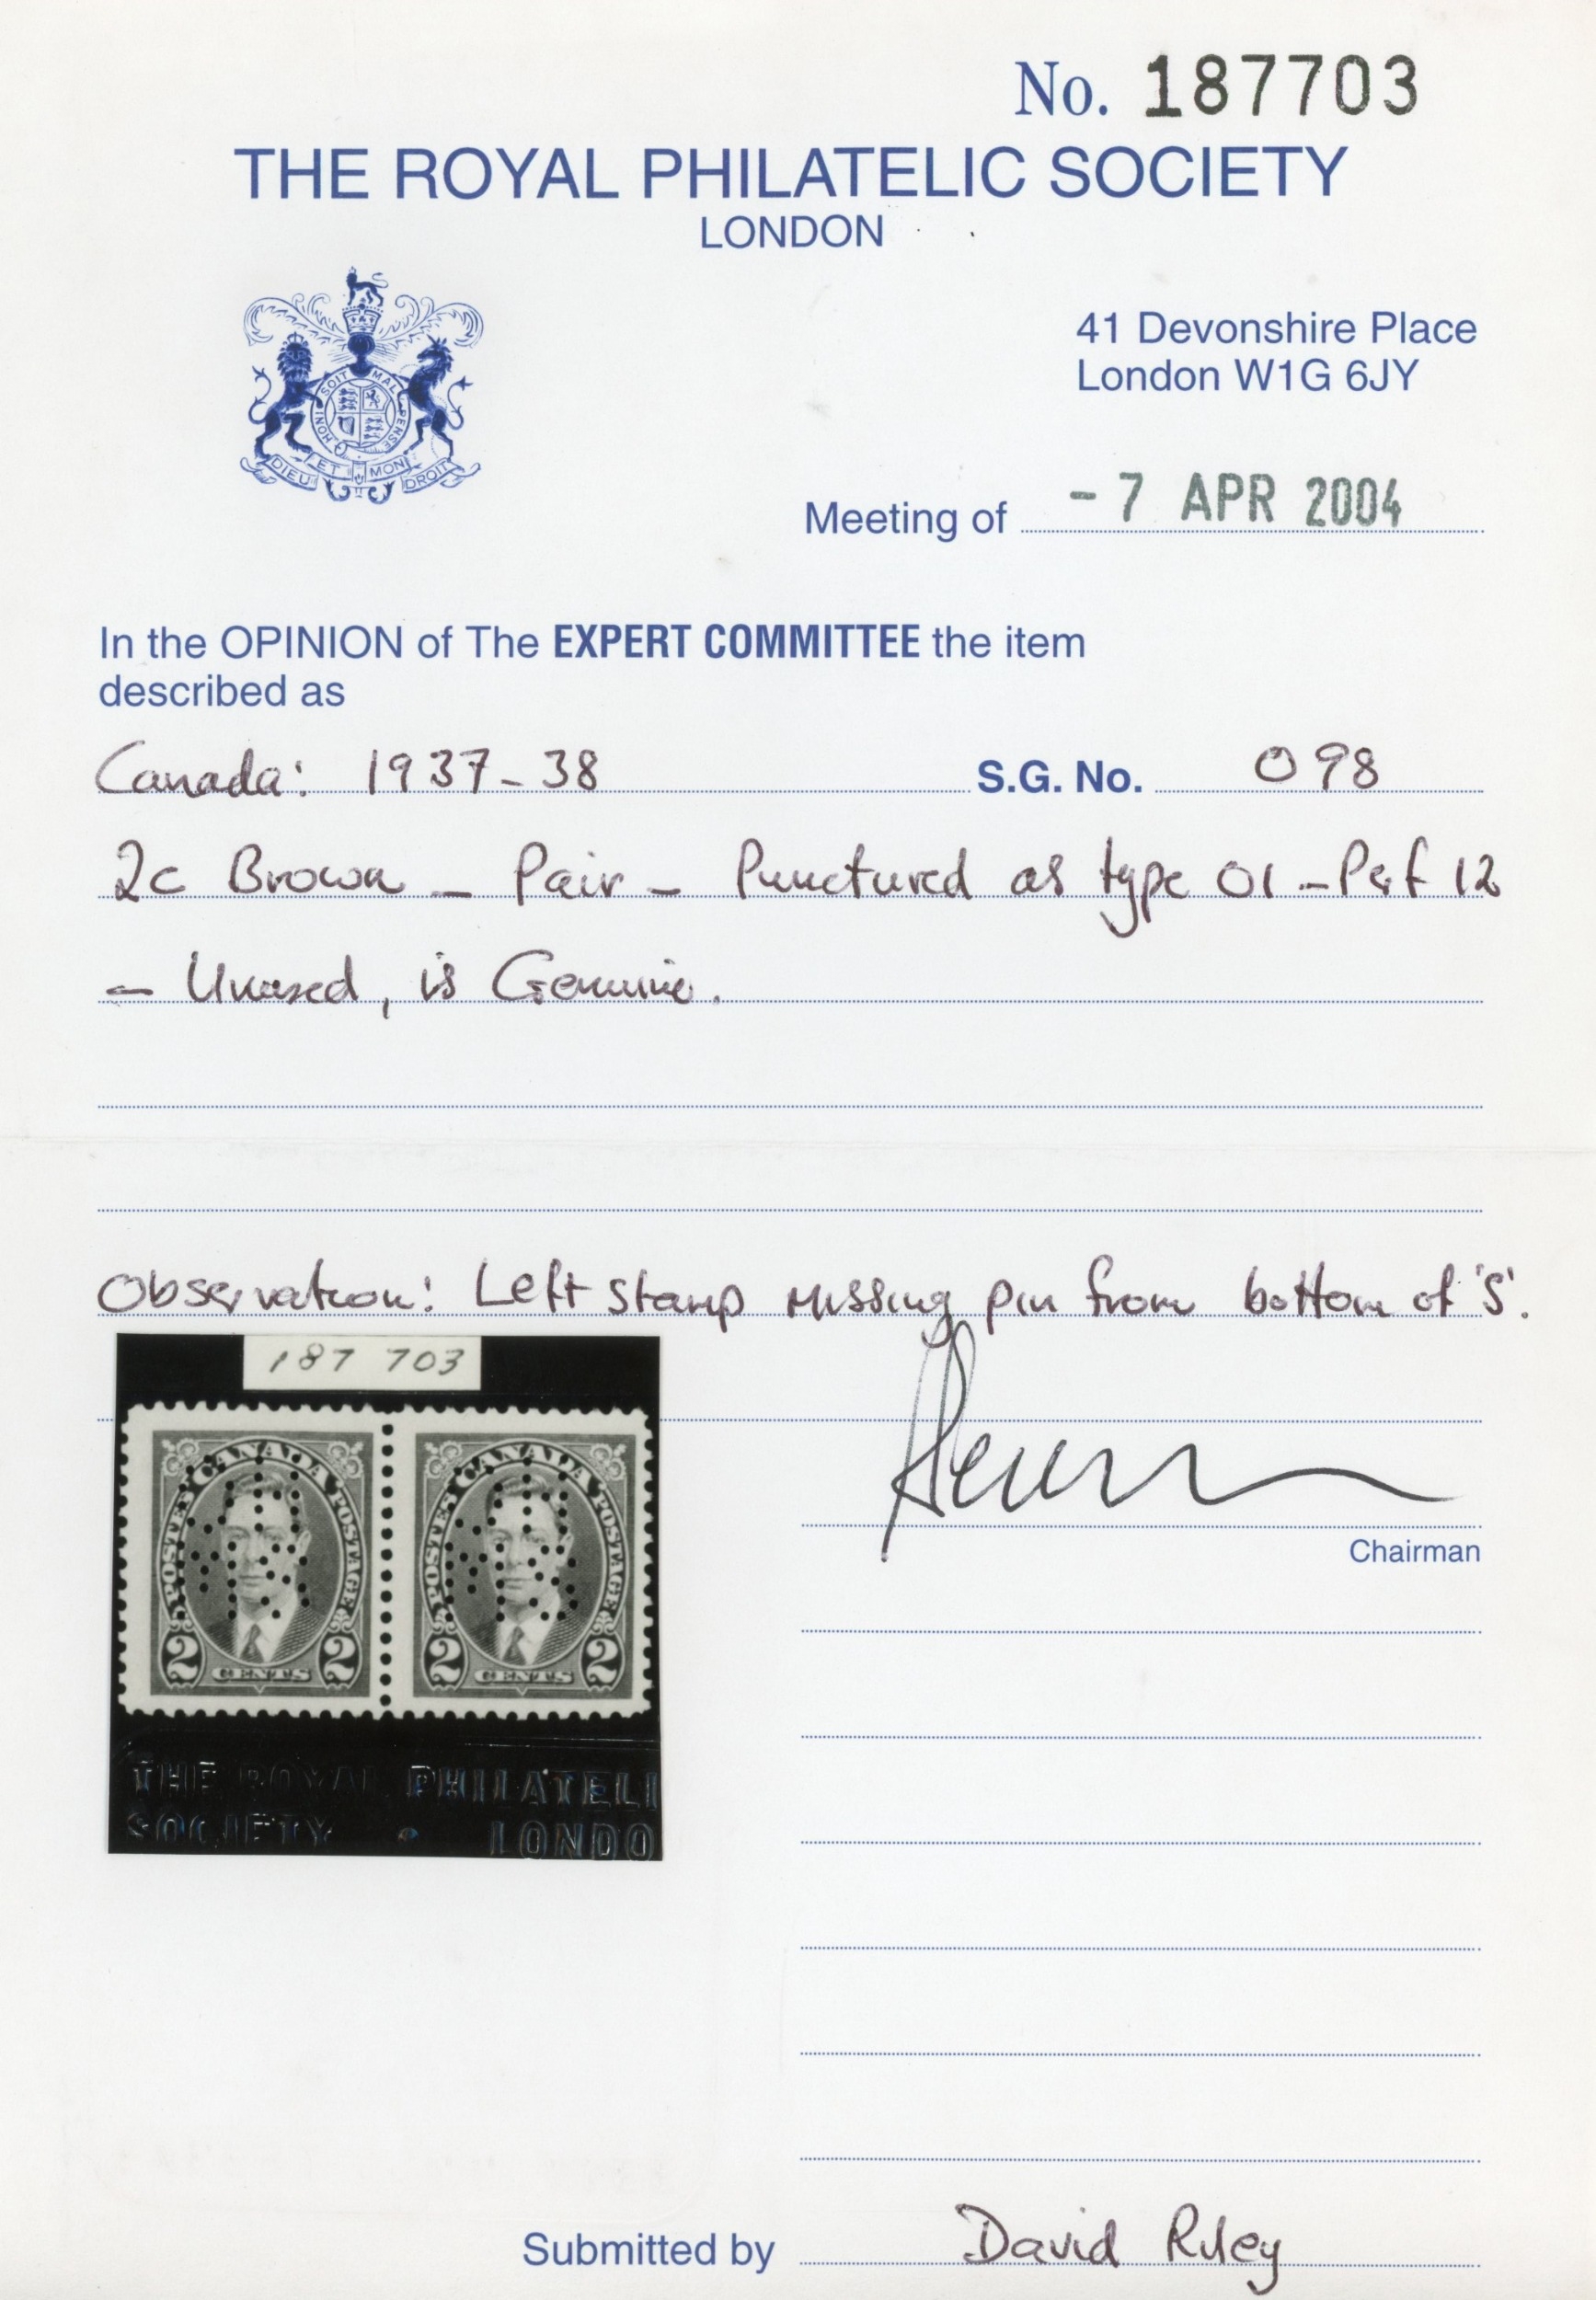 No. 187703
THE ROYAL PHILATELIC SOCIETY
LONDON
HONI SOIT MAL PENSE
DIEU ET MON DROIT
41 Devonshire Place
London W1G 6JY
Meeting of - 7 APR 2004
In the OPINION of The EXPERT COMMITTEE the item
described as
Canada: 1937-38 S.G. No. O98
2c Brown - Pair - Punctured as type O1 - Perf 12
- Unused, is Genuine.
Observation: Left stamp missing pin from bottom of 'S'.
187 703
POSTES CANADA POSTAGE
2 CENTS 2
POSTES CANADA POSTAGE
2 CENTS 2
THE ROYAL PHILATELI
SOCIETY • LONDO
Chairman
Submitted by David Riley